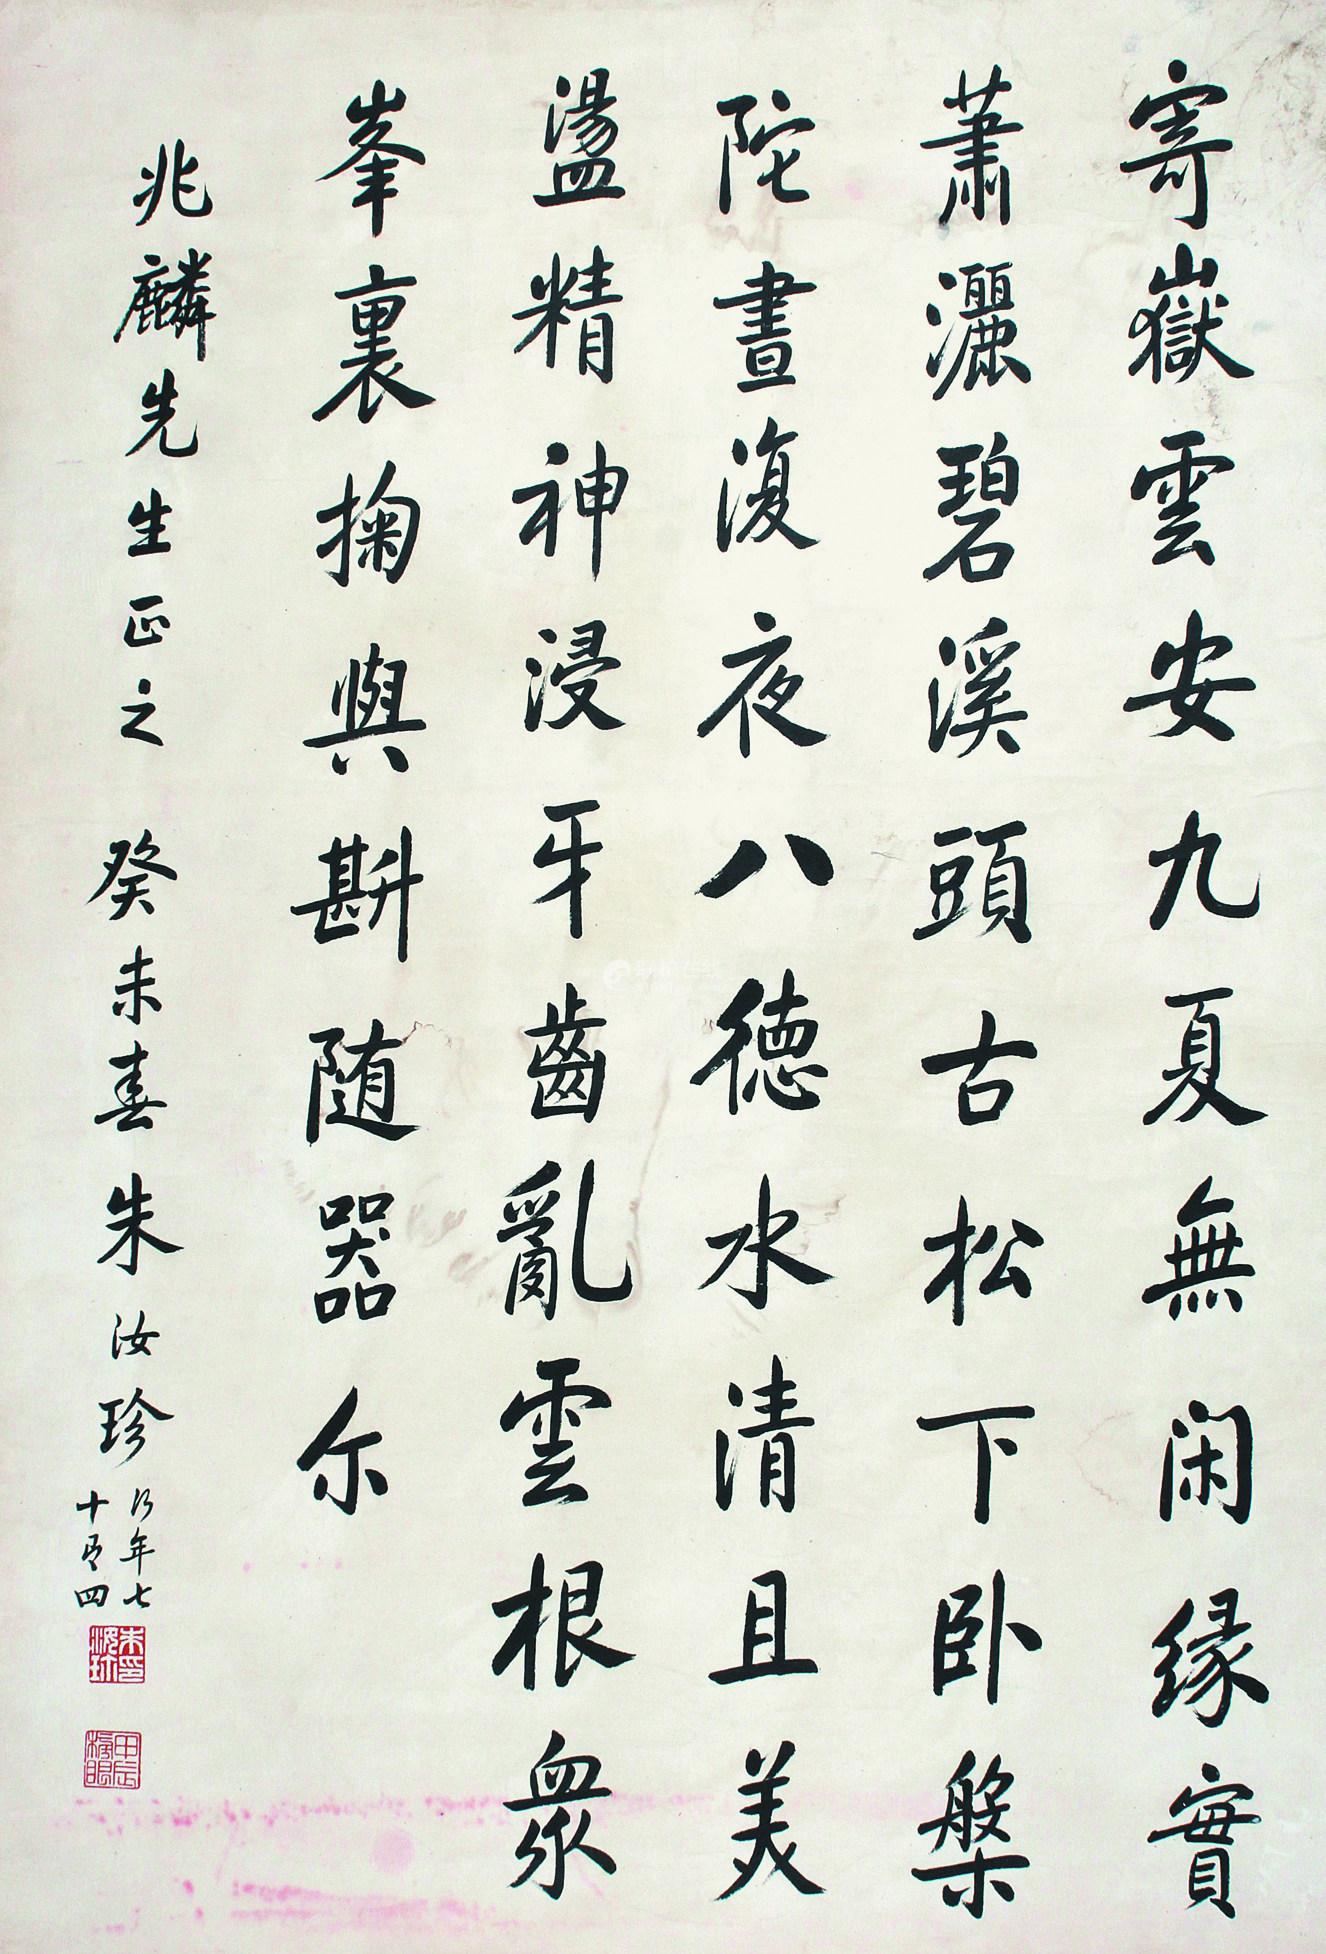 寄嶽雲安九夏無閑緣實
蕭灑碧溪頭古松下卧槃
陀晝復夜八德水清且美
盪精神浸牙齒亂雲根衆
峯裏掬與斟随器尔
兆麟先生正之 癸未春朱汝珍
行年七
十有四
朱汝珍印
甲辰榜眼